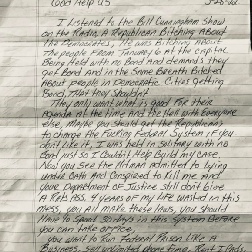 God Help US
I Listened to the Bill Cunningham show
on the Radio, A Republican Bitching About
The Democrates, He was Bitching About
The people From Jan 6 at the capital
Being Held with no Bond And demands they
get Bond and in the same Breath Bitched
About people in Democratic Cities getting
Bond, that they shouldnt
They only want whats is good for their
Agenda at the time and the Hell with everyone
else, Maybe you should get the Republicans
to change the Fucking Federal System if you
dont like it, I was held in solitary with no
Bond just so I couldnt Help Build my Case,
Now you see the Hitman admitted to lying
under Oath And Conspired to Kill me and
your Department of Justice still dont give
A Rats Ass, 4 years of my Life wasted in this
mess, you all made these Laws, you should
Have to spend in the System Before
you can take office,
you want to Run Federal Prison Like A
Business,